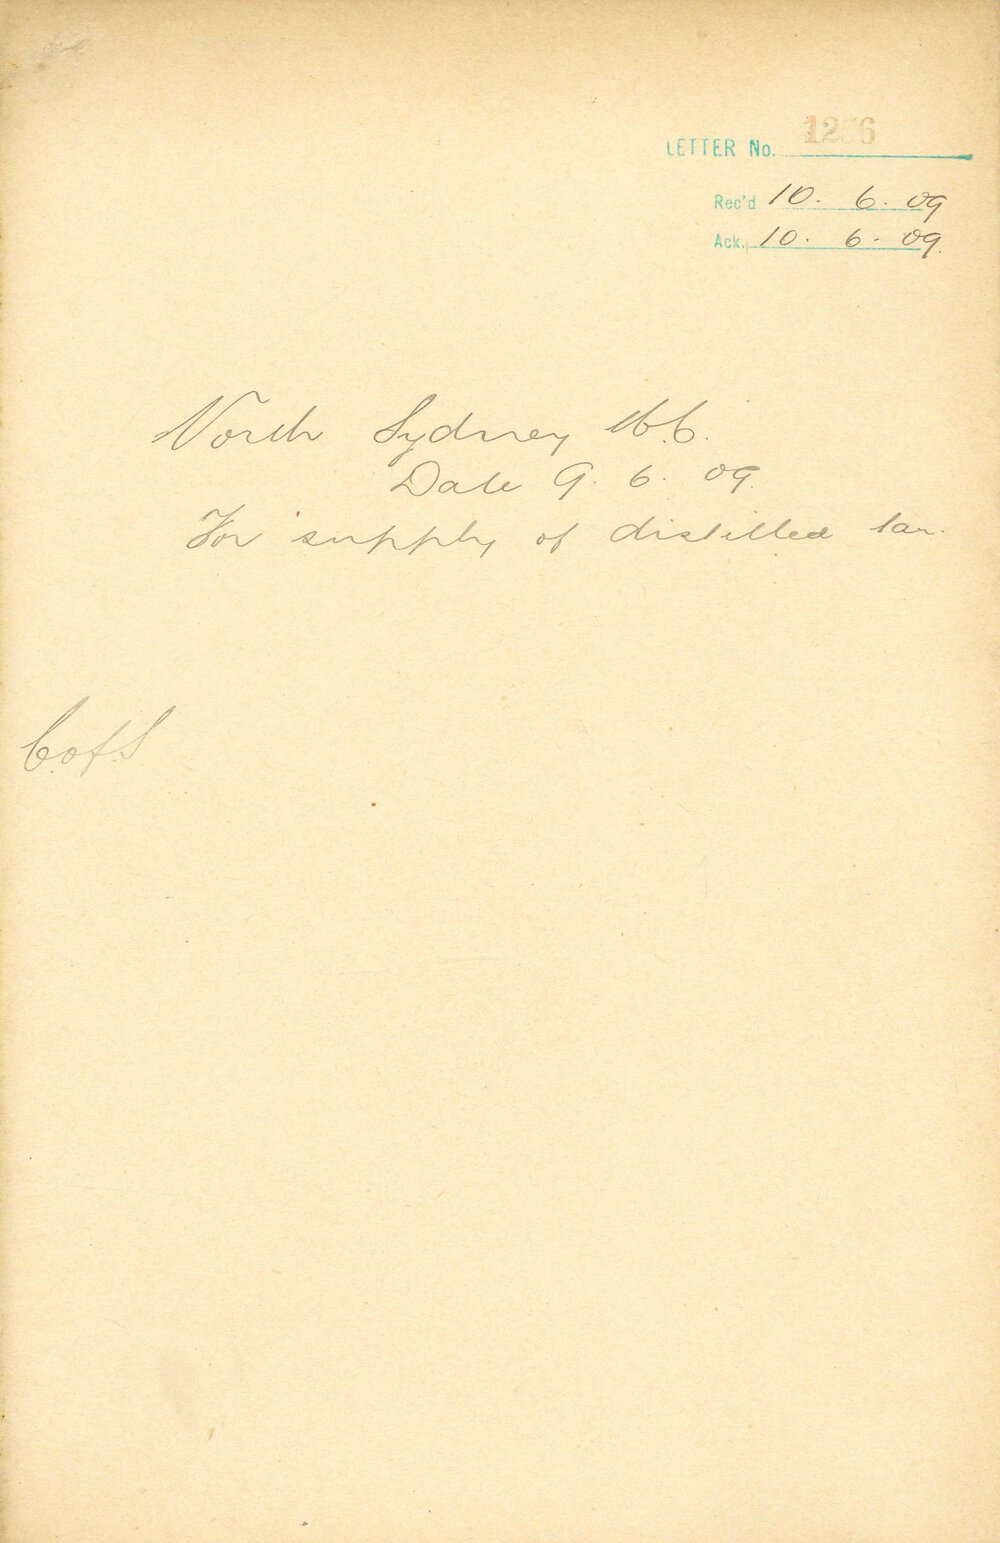 LETTER No. 1256
Rec'd 10. 6. 09
Ack. 10. 6. 09.
North Sydney
Date 9. 6. 09
For supply of distilled tar.
C. of S